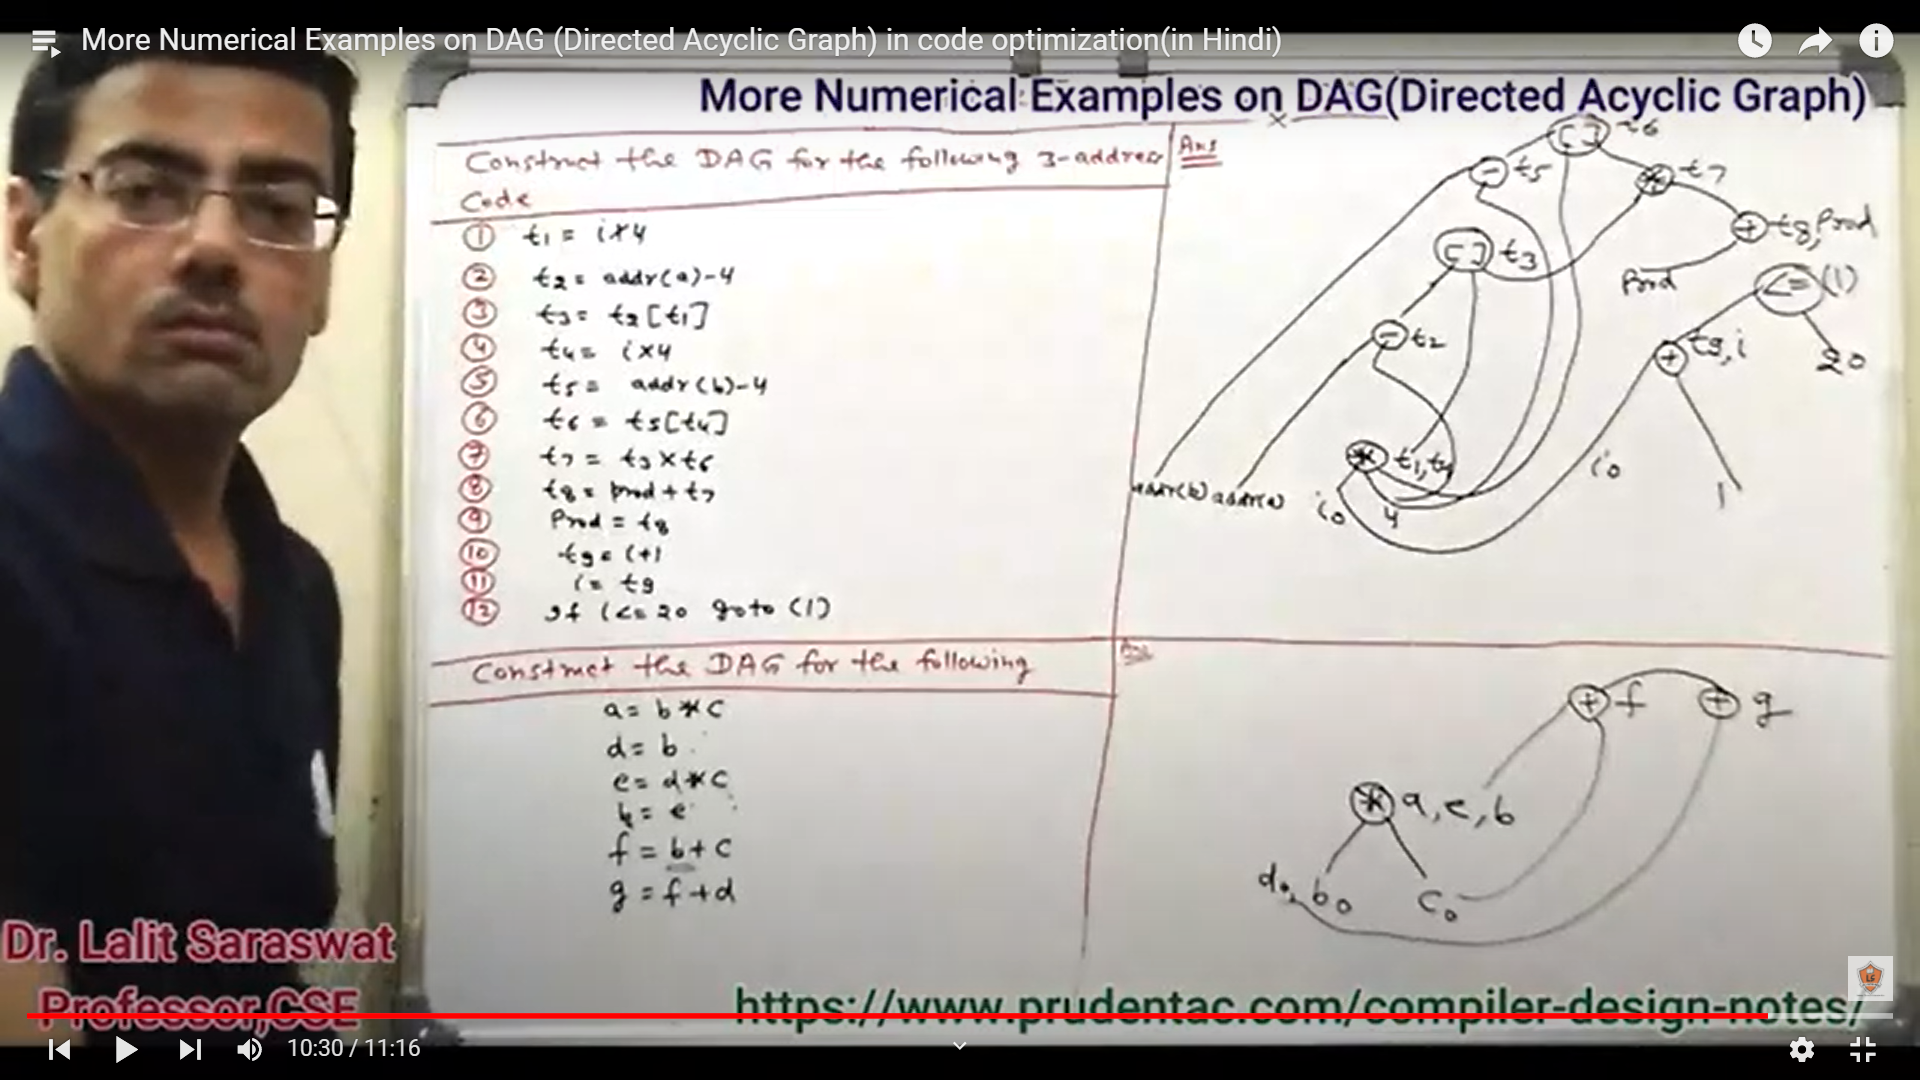 More Numerical Examples on DAG (Directed Acyclic Graph) in code optimization(in Hindi)
More Numerical Examples on DAG(Directed Acyclic Graph)
Construct the DAG for the following 3-address
Code
① t1 = i×4
② t2 = addr(a)-4
③ t3 = t2[t1]
④ t4 = i×4
⑤ t5 = addr(b)-4
⑥ t6 = t5[t4]
⑦ t7 = t3×t6
⑧ t8 = prod+t7
⑨ Prod = t8
⑩ t9 = i+1
⑪ i = t9
⑫ If i<=20 goto (1)
Ans
[] t6
- t5
* t7
+ t8, Prod
[] t3
Prod
<= (1)
- t2
+ t9, i
20
* t1, t4
i0
addr(b) addr(a)
i0
4
1
Construct the DAG for the following
a = b*c
d = b
e = d*c
b = e
f = b+c
g = f+d
Ans
+ f
+ g
* a, e, b
d0, b0
c0
Dr. Lalit Saraswat
Professor,CSE
https://www.prudentac.com/compiler-design-notes/
10:30 / 11:16